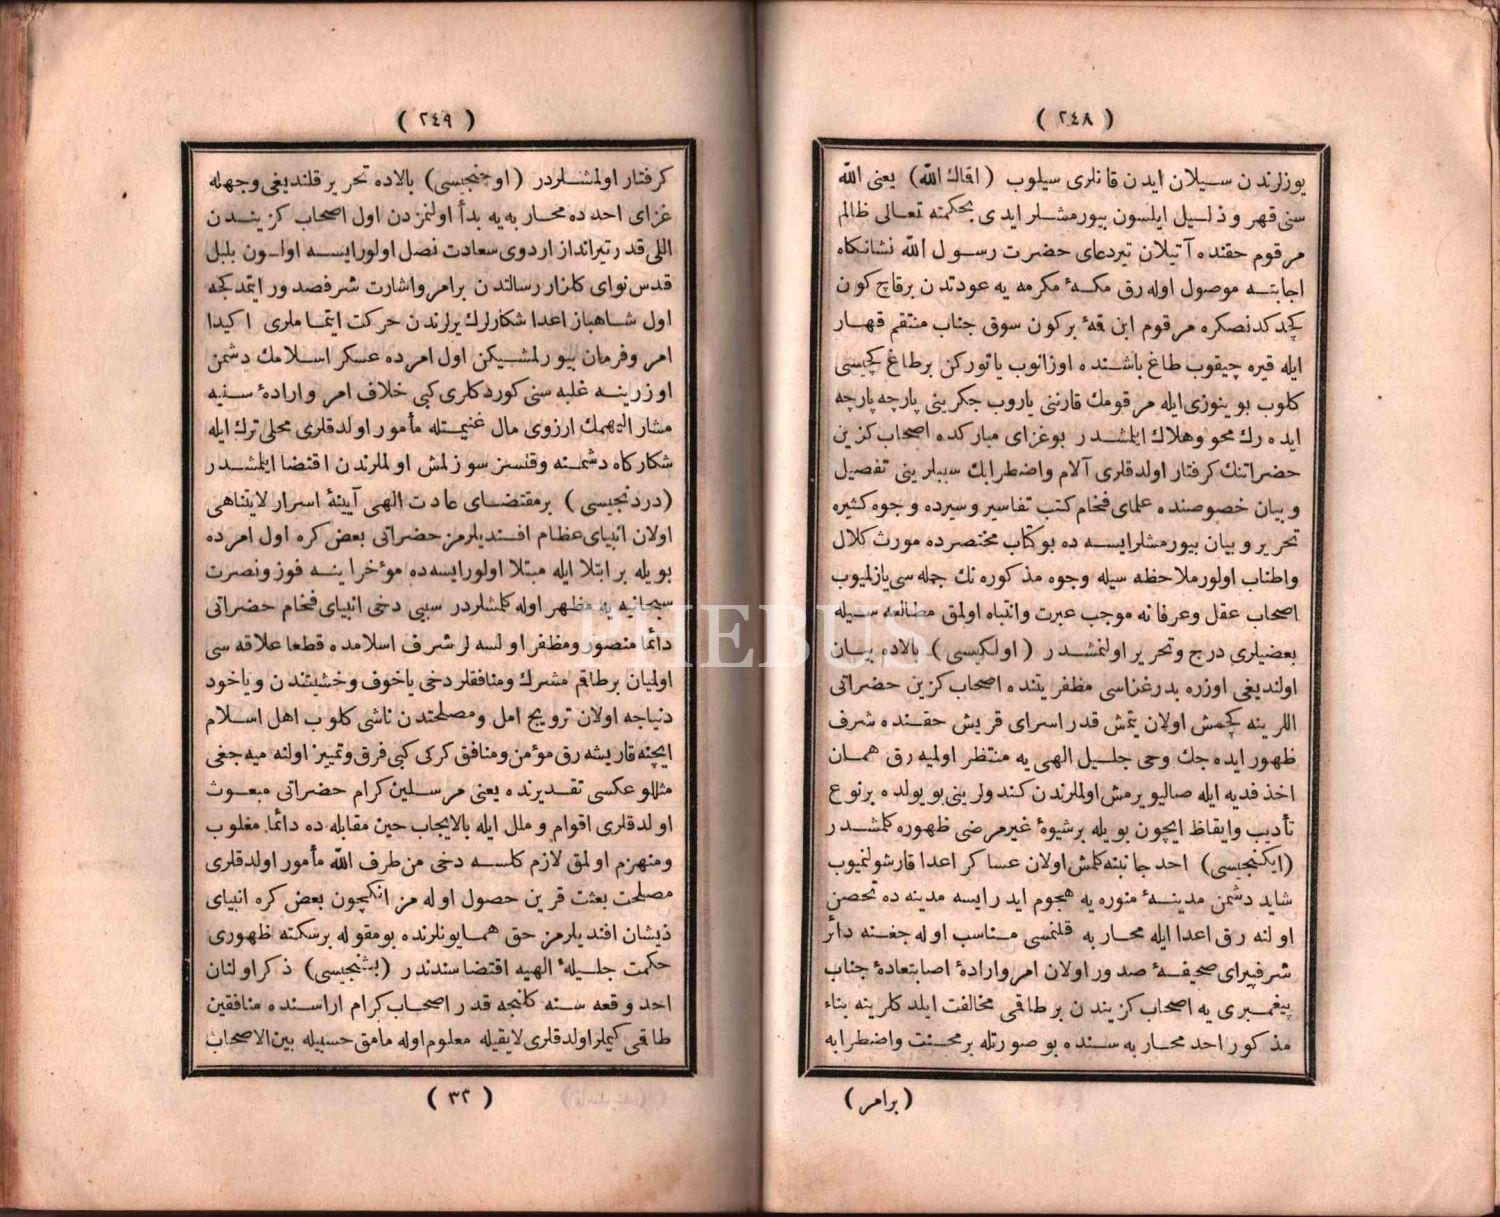 ( ٢٤٨ )
يوزلرندن سيلان ايدن قانلرى سيلوب (اقاك الله) يعنى الله
سنى قهر و ذليل ايلسون بيورمشلر ايدى بحكمته تعالى ظالم
مرقوم حقنده آتيلان تيردعاى حضرت رسول الله نشانكاه
اجابته موصول اوله رق مكهٔ مكرمه يه عودتدن برقاچ كون
كچدكدنصكره مرقوم ابن قمهٔ بركون سوق جناب منتقم قهار
ايله قيره چيقوب طاغ باشنده اوزانوب ياتوركن برطاغ كچيسى
كلوب بوينوزى ايله مرقومك قارننى ياروب جكرينى پارچه پارچه
ايده رك محو وهلاك ايلمشدر بوغزاى مباركده اصحاب كزين
حضراتنك كرفتار اولدقلرى آلام واضطرابك سببلرينى تفصيل
و بيان خصوصنده علماى فخام كتب تفاسير و سيرده وجوه كثيره
تحرير و بيان بيورمشلرايسه ده بوكتاب مختصرده مورث كلال
واطناب اولور ملاحظه سيله وجوه مذكوره نك جمله سى يازلميوب
اصحاب عقل وعرفانه موجب عبرت وانتباه اولمق مطالعه سيله
بعضيلرى درج وتحرير اولنمشدر (اولكيسى) بالاده بيان
اولنديغى اوزره بدرغزاسى مظفريتنده اصحاب كزين حضراتى
اللرينه كچمش اولان يتمش قدر اسراى قريش حقنده شرف
ظهور ايده جك وحى جليل الهى يه منتظر اولميه رق همان
اخذ فديه ايله صاليويرمش اولملرندن كندولرينى بو يولده برنوع
تأديب وايقاظ ايچون بويله برشيوهٔ غيرمرضى ظهوره كلمشدر
(ايكنجيسى) احد جانبنه كلمش اولان عساكر اعدا قارشولنميوب
شايد دشمن مدينهٔ منوره يه هجوم ايدرايسه مدينه ده تحصن
اولنه رق اعدا ايله محاربه قلنمسى مناسب اوله جغنه دائر
شرفپيراى صحيفهٔ صدور اولان امر وارادهٔ اصابتعادهٔ جناب
پيغمبرى يه اصحاب كزيندن برطاقمى مخالفت ايلدكلرينه بناء
مذكور احد محاربه سنده بو صورتله برمحنت واضطرابه
( برامر )
( ٢٤٩ )
كرفتار اولمشلردر (اوچنجيسى) بالاده تحرير قلنديغى وجهله
غزاى احدده محاربه يه بدأ اولنمزدن اول اصحاب كزيندن
اللى قدر تيرانداز اردوى سعادت نصل اولورايسه اولسون بلبل
قدس نواى كلزار رسالتدن برامر واشارت شرفصدور ايتمدكجه
اول شاهباز اعدا شكارلرك يرلرندن حركت ايتماملرى اكيدا
امر وفرمان بيورلمشيكن اول امرده عسكر اسلامك دشمن
اوزرينه غلبه سنى كوردكلرى كبى خلاف امر وارادهٔ سنيه
مشار اليهمك ارزوى مال غنيمتله مأمور اولدقلرى محلى ترك ايله
شكاركاه دشمنه وقتسز سوزلمش اولملرندن اقتضا ايلمشدر
(دردنجيسى) برمقتضاى عادت الهى آيينهٔ اسرار لايتناهى
اولان انبياى عظام افنديلرمز حضراتى بعض كره اول امرده
بويله برابتلا ايله مبتلا اولورايسه ده مؤخراينه فوز ونصرت
سبحانيه يه مظهر اوله كلمشلردر سببى دخى انبياى فخام حضراتى
دائما منصور ومظفر اولسه لر شرف اسلامده قطعا علاقه سى
اولميان برطاقم مشرك ومنافقلر دخى ياخوف وخشيتندن وياخود
دنياجه اولان ترويج امل ومصلحتدن ناشى كلوب اهل اسلام
ايچنه قاريشه رق مؤمن ومنافق كركى كبى فرق وتمييز اولنه ميه جغى
مثللو عكسى تقديرنده يعنى مرسلين كرام حضراتى مبعوث
اولدقلرى اقوام وملل ايله بالايجاب حين مقابله ده دائما مغلوب
ومنهزم اولمق لازم كلسه دخى من طرف الله مأمور اولدقلرى
مصلحت بعثت قرين حصول اوله مز انكيچون بعض كره انبياى
ذيشان افنديلرمز حق همايونلرنده بومقوله برسكته ظهورى
حكمت جليلهٔ الهيه اقتضاسندندر (بشنجيسى) ذكراولنان
احد وقعه سنه كلنجه قدر اصحاب كرام اراسنده منافقين
طاقمى كيملر اولدقلرى لايقيله معلوم اوله مامق حسبيله بين الاصحاب
( ٣٢ )
PHEBUS